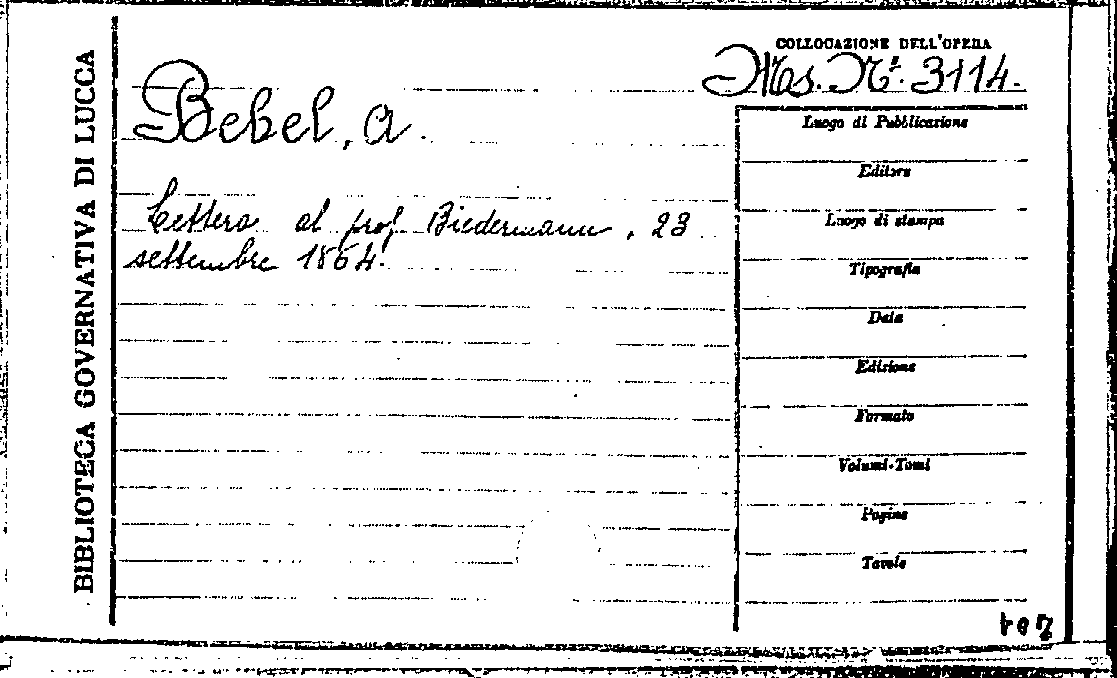 BIBLIOTECA GOVERNATIVA DI LUCCA
COLLOCAZIONE DELL'OPERA
Ms. Nº. 3114.
Bebel, A.
Lettera al prof. Biedermann, 23
settembre 1864.
Luogo di Pubblicazione
Editore
Luogo di stampa
Tipografia
Data
Edizione
Formato
Volumi-Tomi
Pagine
Tavole